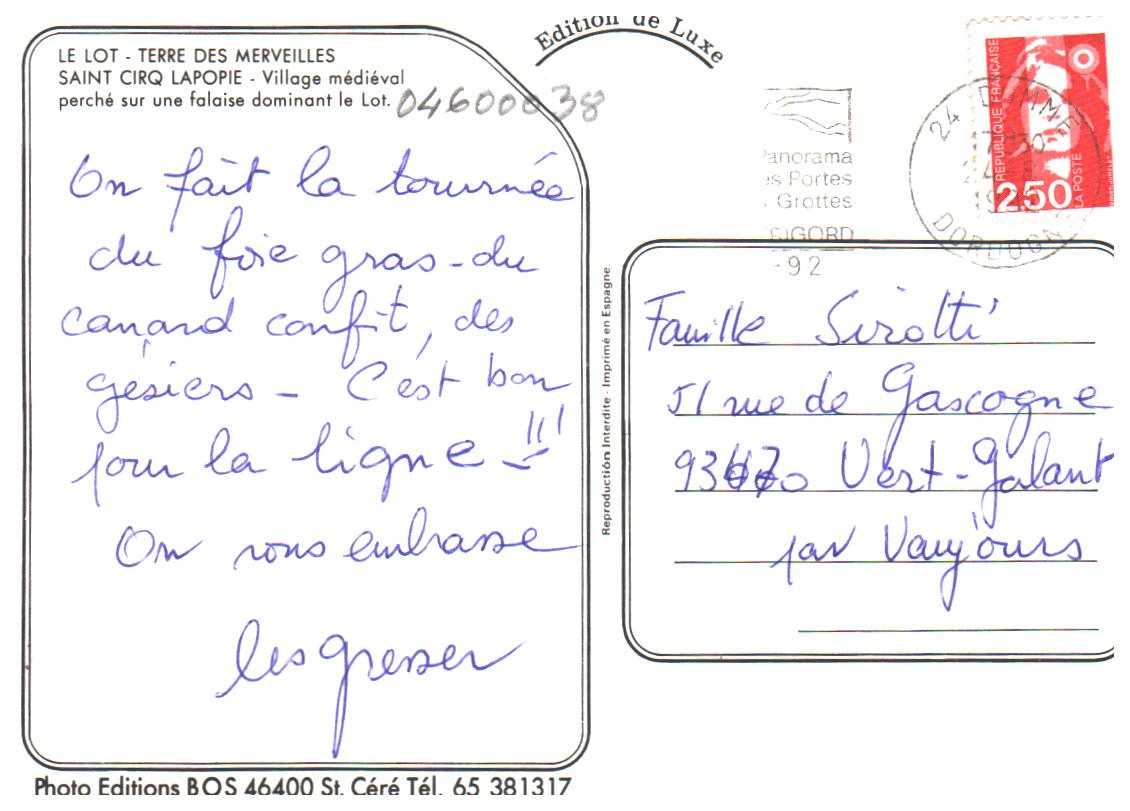 Edition de Luxe
LE LOT - TERRE DES MERVEILLES
SAINT CIRQ LAPOPIE - Village médiéval
perché sur une falaise dominant le Lot.
04600038
On fait la tournée
du foie gras - du
canard confit, des
gésiers - C'est bon
pour la ligne !!!
On vous embrasse
les Gresser
Photo Editions BOS 46400 St. Céré Tél. 65 381317
Reproduction Interdite - Imprimé en Espagne.
Panorama
es Portes
Grottes
RIGORD
-92
24 DOMME
DORDOGN
REPUBLIQUE FRANÇAISE
2,50
LA POSTE
Famille Sirotti
51 rue de Gascogne
Vert-Galant
par Vaujours